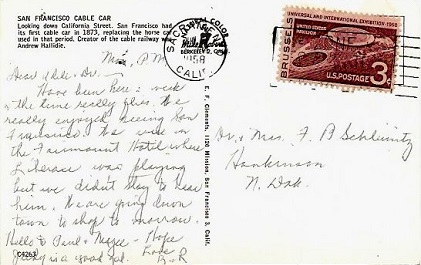 SAN FRANCISCO CABLE CAR
Looking down California Street. San Francisco had
its first cable car in 1873, replacing the horse car
used in that period. Creator of the cable railway was
Andrew Hallidie.
P.M.
Dear
Have been here a week
& the time really flies. We
really enjoyed seeing San
Francisco. We were in
the Fairmount Hotel where
Liberace was playing
but we didn't stay to hear
him. We are going down
town to shop to morrow.
Hello to Paul & Hope
is a good gal. Love
B & R
C4263
E. F. Clements, 1120 Mission, San Francisco 3, Calif.
COLOR
Mike Roberts
BERKELEY 2, CAL
SACRAMENTO
CALIF.
1958
UNIVERSAL AND INTERNATIONAL EXHIBITION · 1958
UNITED STATES PAVILION
BRUSSELS
U.S. POSTAGE 3¢
Dr. & Mrs. F P Schleinitz
Hankinson
N. Dak.